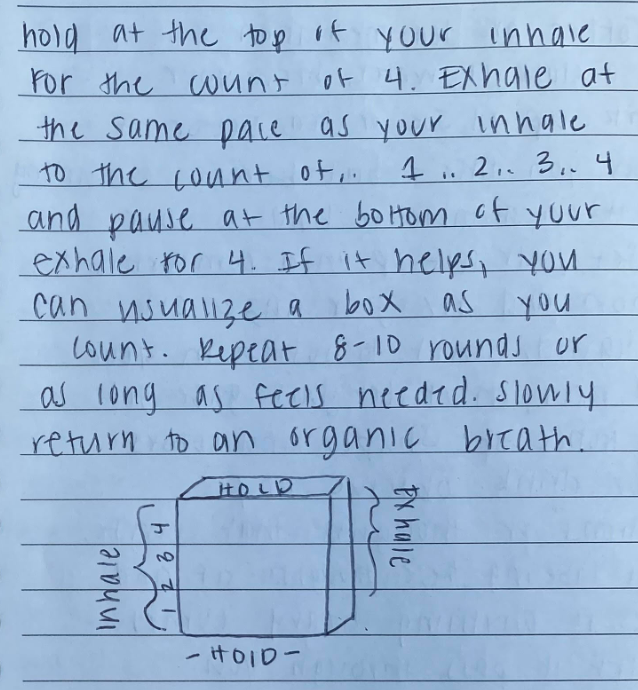 hold at the top of your inhale
For the count of 4. Exhale at
the same pace as your inhale
to the count of... 1 ... 2... 3... 4
and pause at the bottom of your
exhale for 4. If it helps, you
can visualize a box as you
count. Repeat 8-10 rounds or
as long as feels needed. Slowly
return to an organic breath.
HOLD
inhale
1 2 3 4
Exhale
- HOlD -